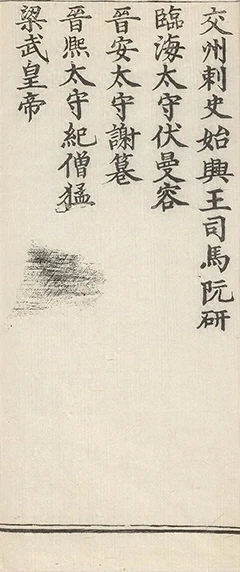 交州刺史始興王司馬阮研
臨海太守伏曼容
晉安太守謝㠱
晉熙太守紀僧猛
梁武皇帝